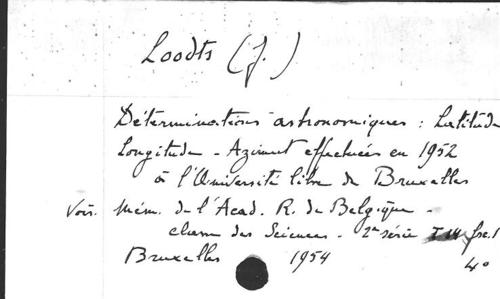 Loodts (J.)
Déterminations astronomiques : Latitude
Longitude - Azimut effectuées en 1952
à l'Université libre de Bruxelles
Voir. Mém. de l'Acad. R. de Belgique -
classe des Sciences - 2e série fsc. 1
Bruxelles 1954 4o